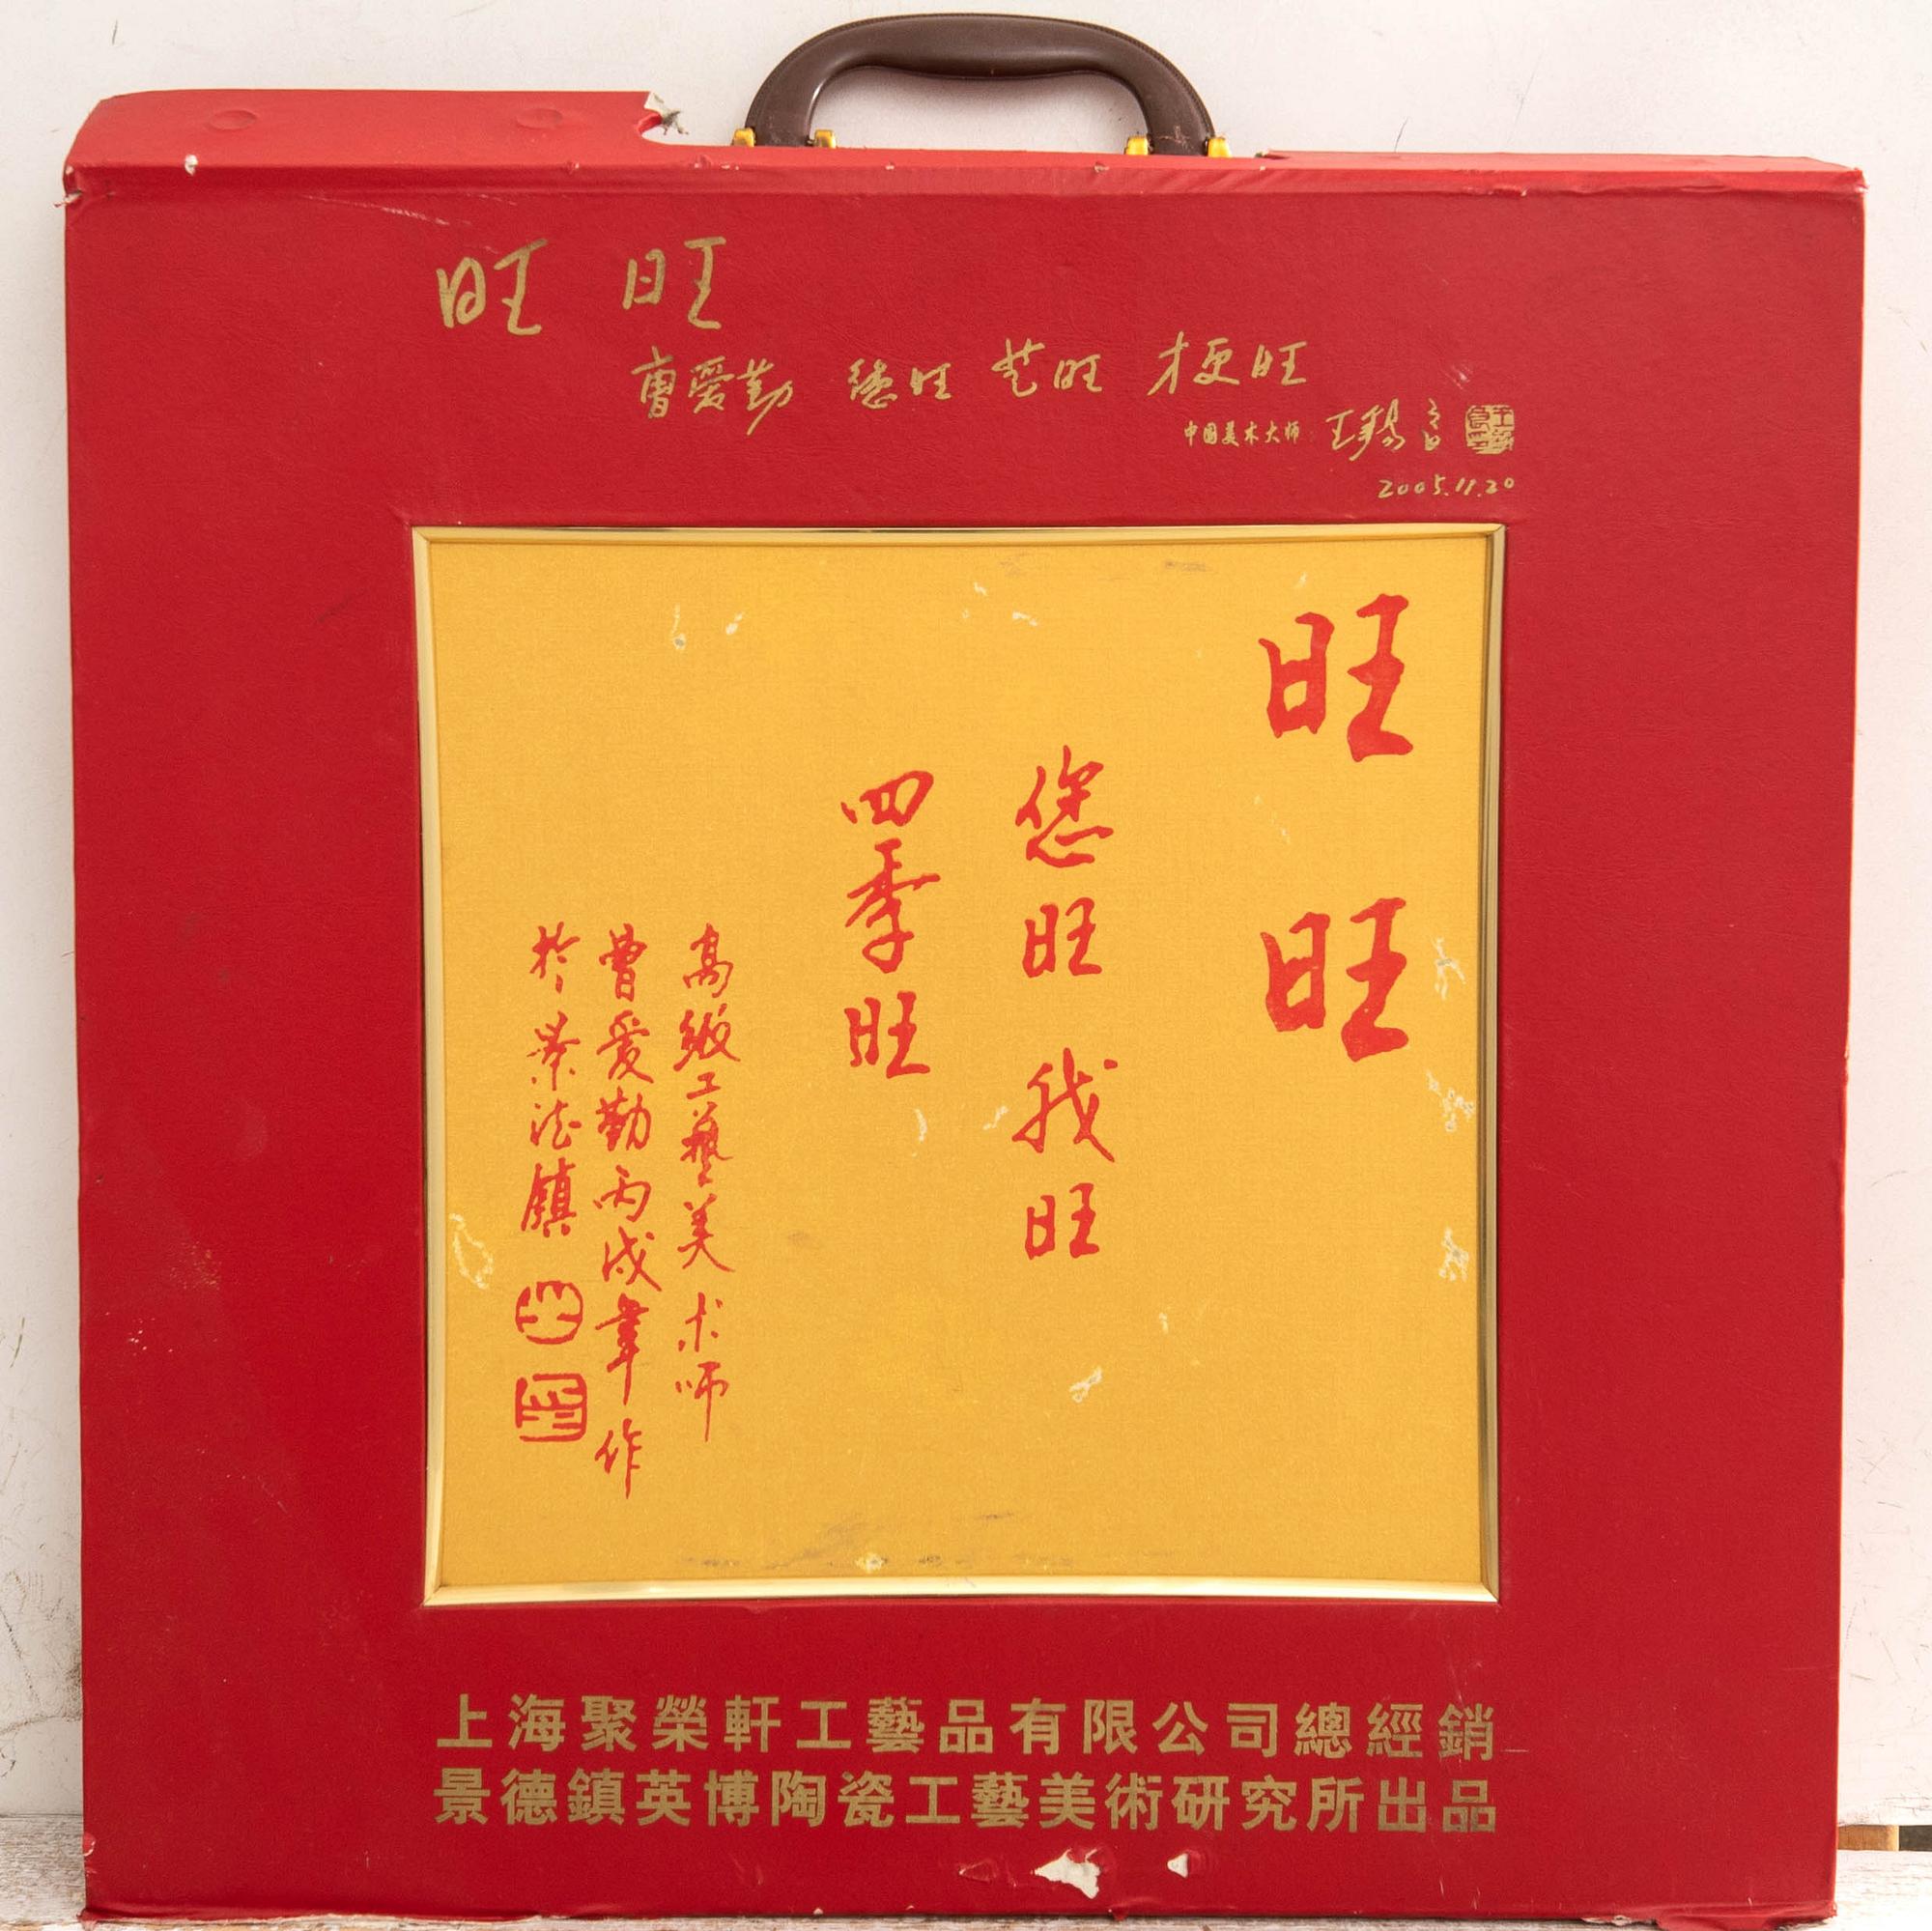 旺 旺
曹愛勤 德旺 艺旺 才更旺
中国美术大师 王锡良
2005.11.20
旺旺
您旺我旺
四季旺
高級工藝美术师
曹爱勤丙戌年作
於景德鎮
上海聚榮軒工藝品有限公司總經銷
景德鎮英博陶瓷工藝美術研究所出品